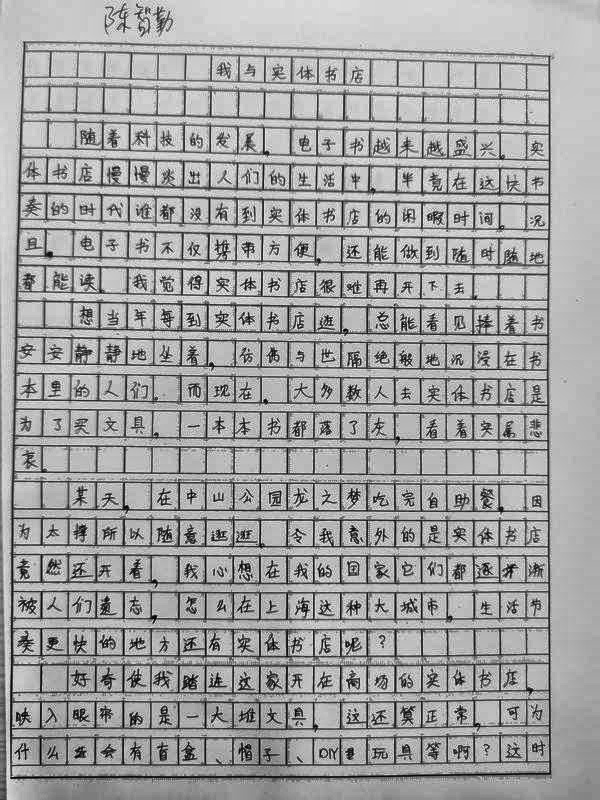 陈智勤
我与实体书店
随着科技的发展，电子书越来越盛兴，实
体书店慢慢淡出人们的生活中，毕竟在这快书
奏的时代谁都没有到实体书店的闲暇时间，况
且，电子书不仅携带方便，还能做到随时随地
都能读。我觉得实体书店很难再开下去。
想当年每到实体书店逛，总能看见捧着书
安安静静地坐着，仿偽与世隔绝般地沉浸在书
本里的人们。而现在，大多数人去实体书店是
为了买文具，一本本书都落了灰，看着实属悲
哀。
某天，在中山公园龙之梦吃完自助餐，因
为太撑所以随意逛逛。令我意外的是实体书店
竟然还开着，我心想在我的国家它们都逐渐
被人们遗忘，怎么在上海这种大城市，生活节
奏更快的地方还有实体书店呢？
好奇使我踏进这家开在商场的实体书店，
映入眼帘的是一大堆文具，这还算正常，可为
什么会有盲盒、帽子、DIY玩具等啊？这时